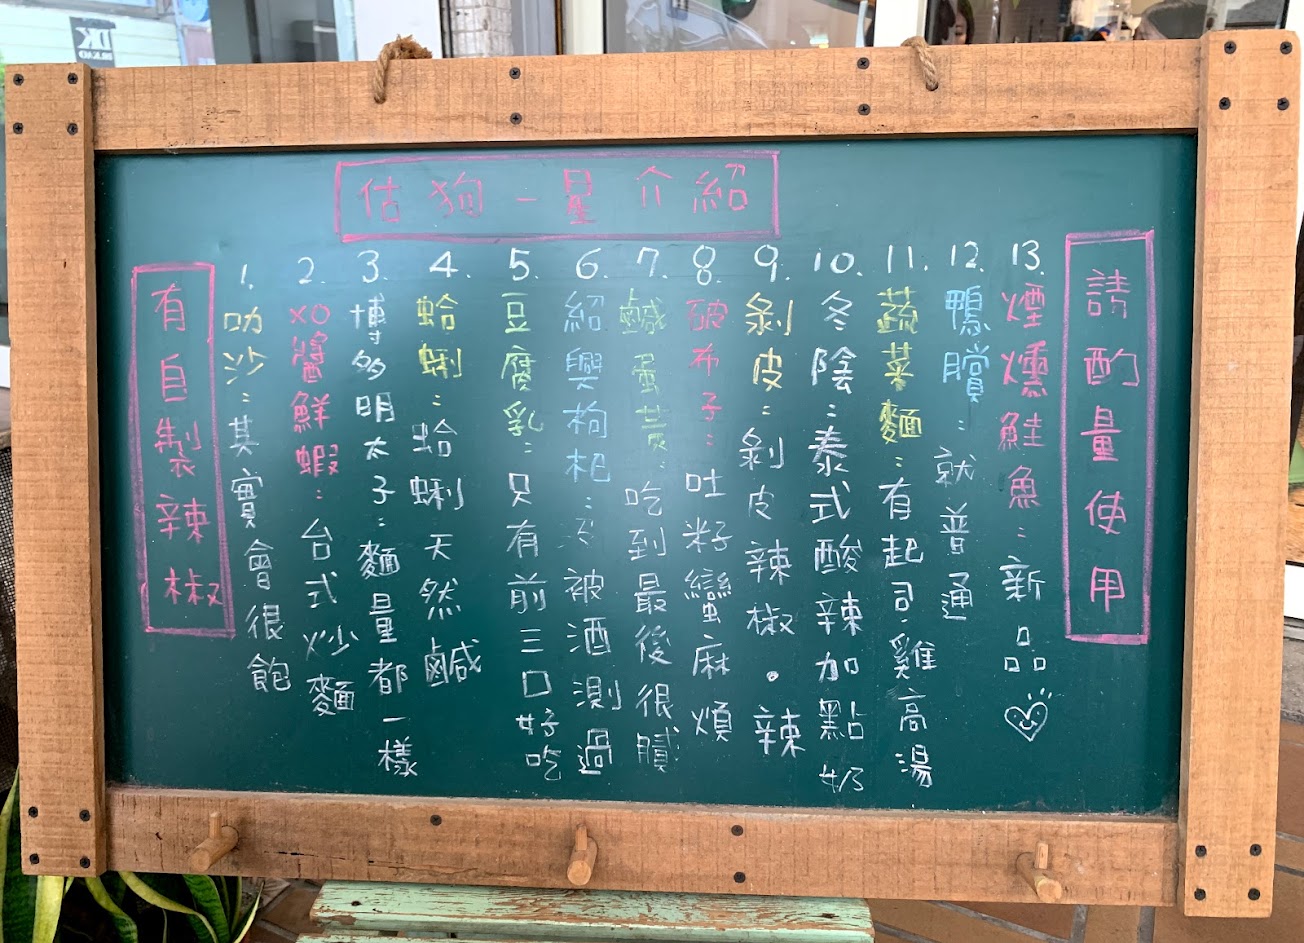 估狗一量介紹
請酌量使用
13.煙燻鮭魚:新品
12.鴨賞:就普通
11.蔬菜麵:有起司.雞高湯
10.冬陰:泰式酸辣加點奶
9.剝皮:剝皮辣椒。辣
8.破布子:吐籽蠻麻煩
7.鹹蛋黃:吃到最後很膩
6.紹興枸杞:沒被酒測過
5.豆腐乳:只有前三口好吃
4.蛤蜊:蛤蜊天然鹹
3.博多明太子:麵量都一樣
2.XO醬鮮蝦:台式炒麵
1.叻沙:其實會很飽
有自製辣椒